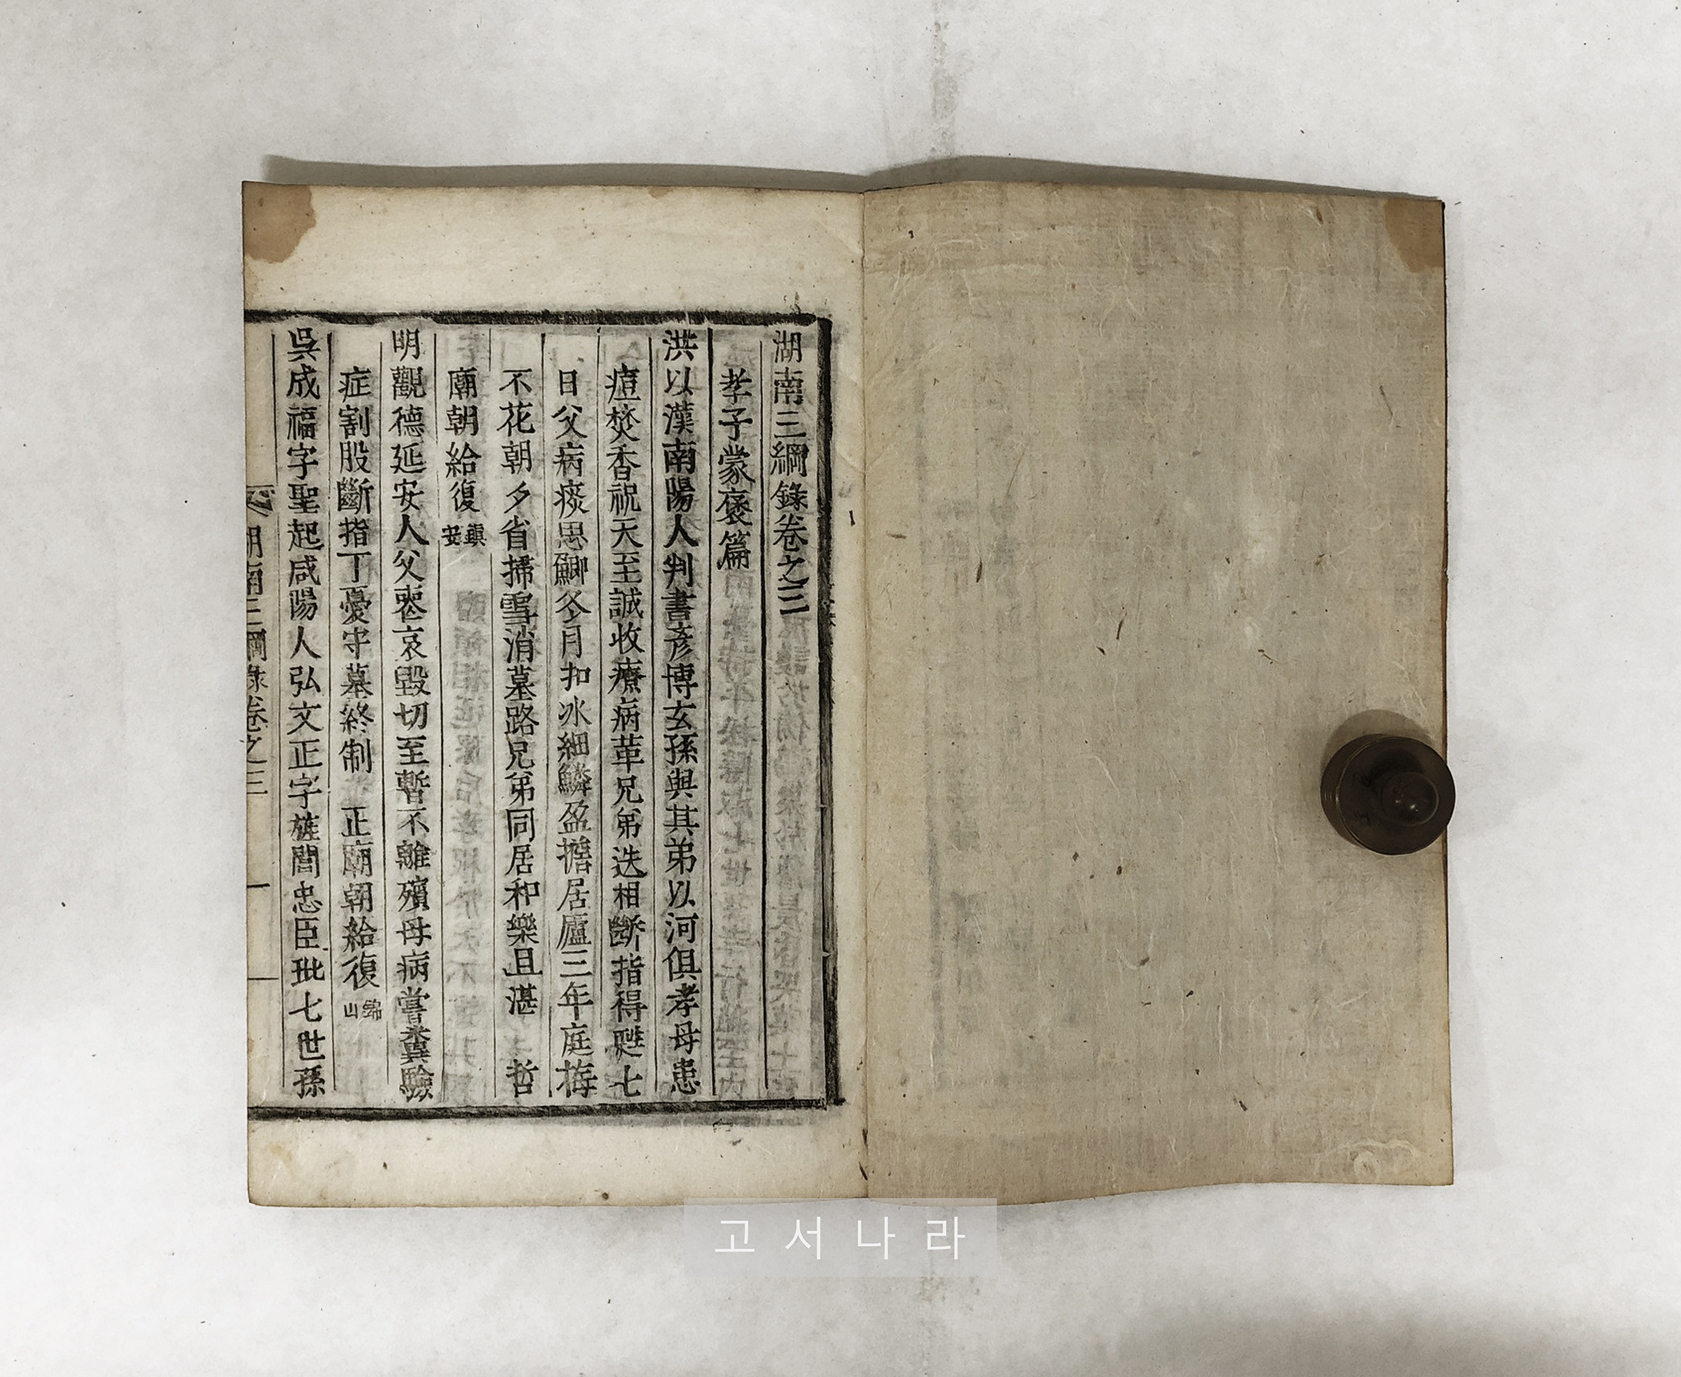 湖南三綱錄卷之三
孝子蒙褒篇
洪以漢南陽人判書彦博玄孫與其弟以河俱孝母患
痘焚香祝天至誠收療病革兄弟迭相斷指得甦七
日父病痰思鯽冬月扣氷細鱗盈擔居廬三年庭梅
不花朝夕省掃雪消墓路兄弟同居和樂且湛 哲
廟朝給復 鎮安
明觀德延安人父喪哀毀切至暫不離殯母病嘗糞驗
症割股斷指丁憂守墓終制 正廟朝給復 錦山
吳成福字聖起咸陽人弘文正字旌閭忠臣玭七世孫
湖南三綱錄卷之三 一
고서나라